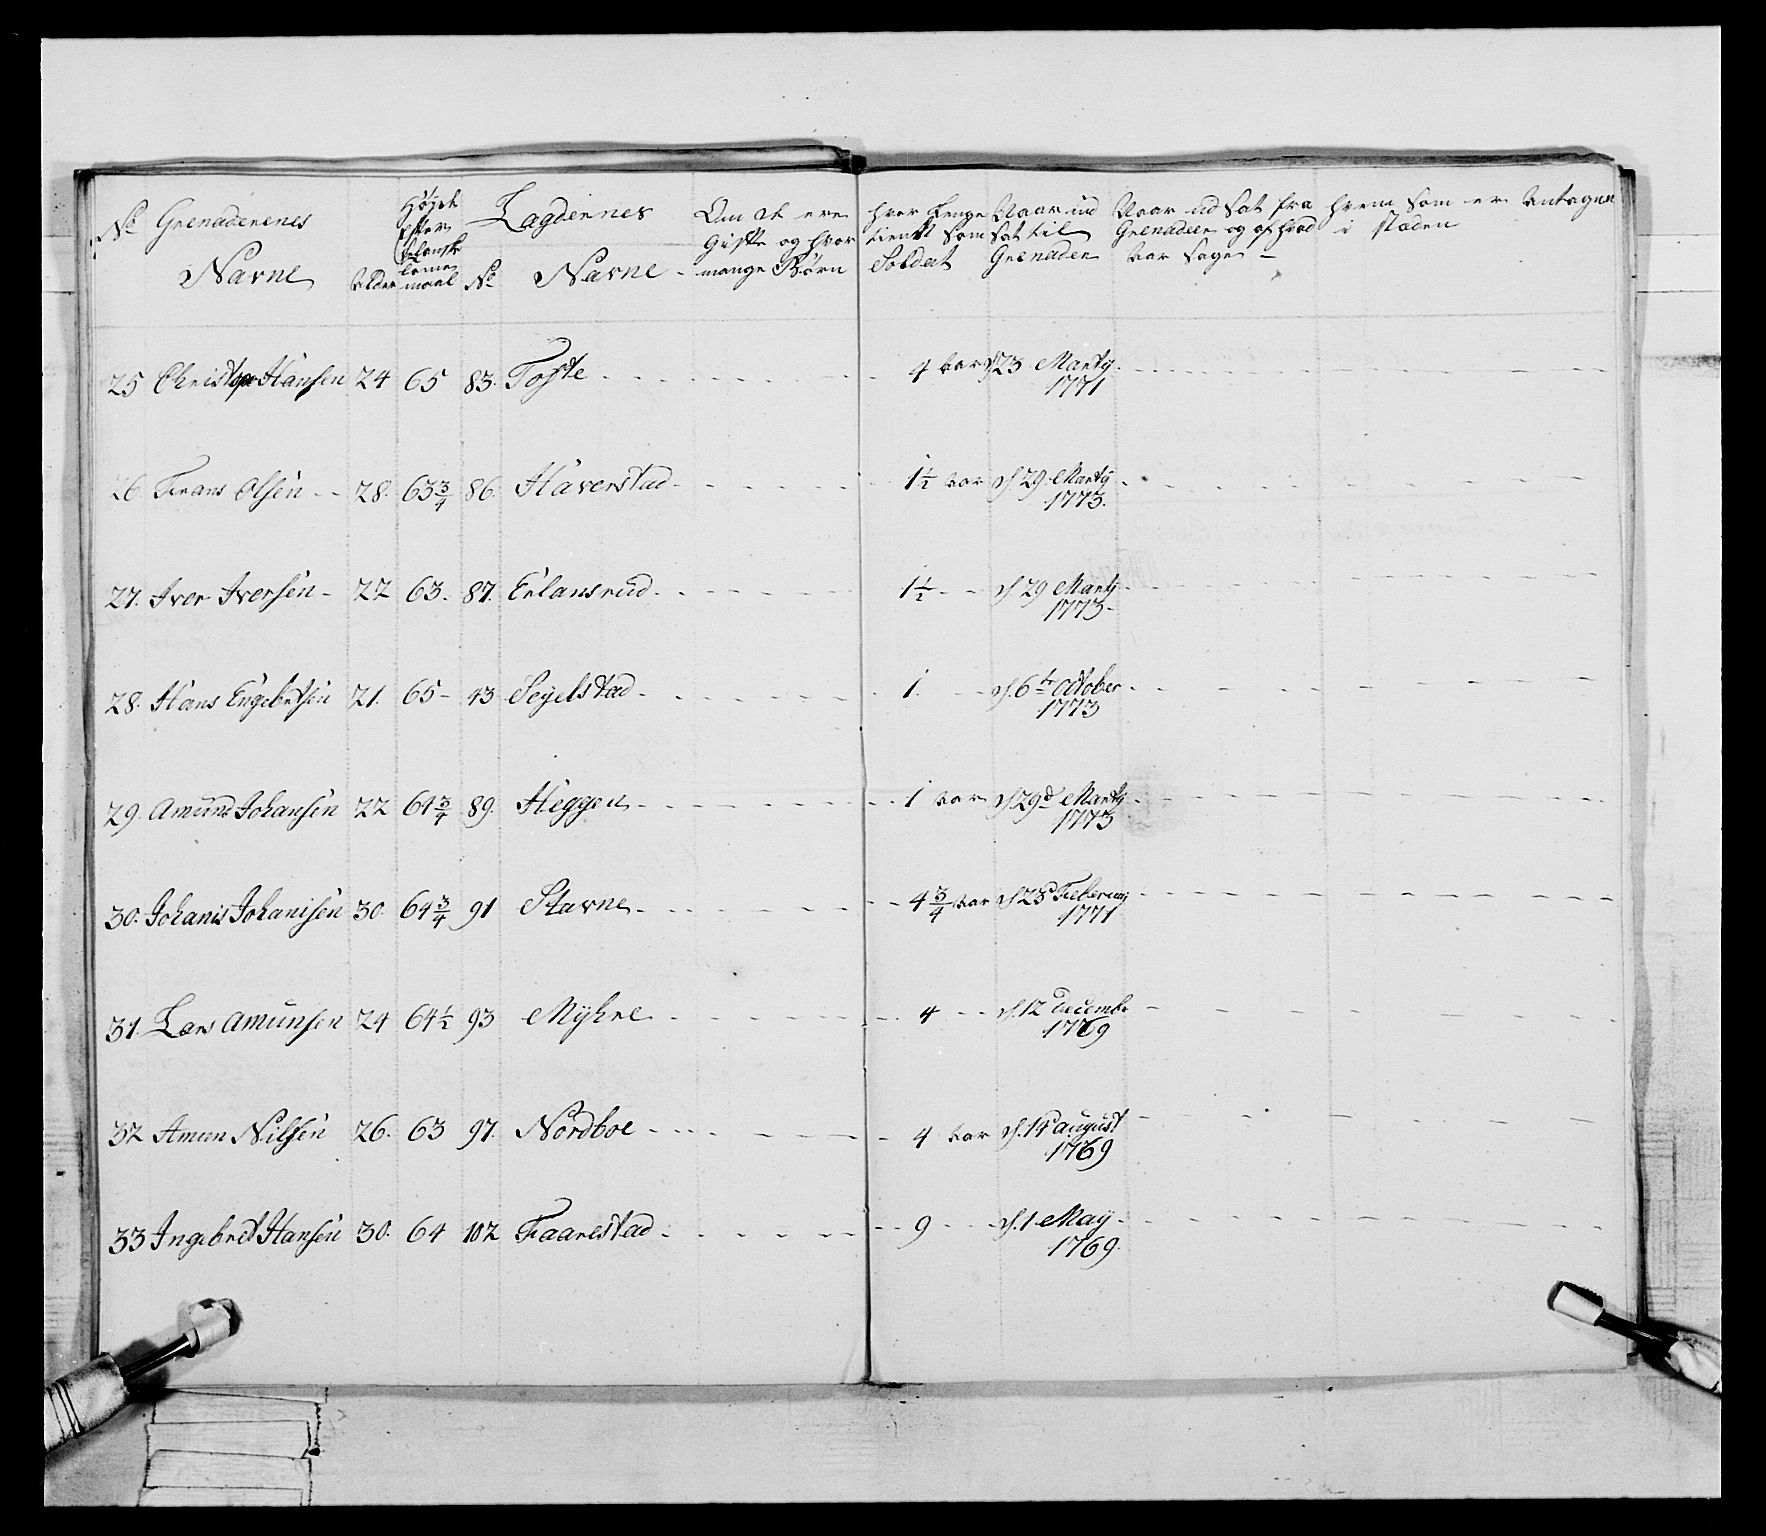 No Grenaderenes Navne Alder Højde efter Selanske lome maal No Lagdernes Navne Om de ere Gifte og hvor mange Børn hvor Lenge tient som Soldat Naar ud sat til Grenader Naar ud sat fra Grenadeer og af hvad Aar sage hvem som er Antagen i staden
25 Christopr Hansen 24 65 83. Toste 4 aar d 23 Martÿ 1771
26. Frans Olsen 28. 63 3/4 86. Haverstad 1 1/2 aar d. 29. Martÿ 1773.
27. Iver Iversen 22 63. 87. Erlansrud 1 1/2 d. 29 Martÿ 1773
28. Hans Engebretsen 21. 65 43 Segelstad 1. d. 6te October 1773
29. Amund Johansen 22 64 3/4 89. Heggen 1 aar d. 29d Martÿ 1773
30. Johanis Johanisen 30. 64 3/4 91 Stavne 4 3/4 aar d. 23d Februarÿ 1771
31. Lars Amunsen 24 64 1/2 93 Mÿhre 4 d. 12 Decembr 1769
32 Amun Nilsen 26. 63 97. Nordboe 4 aar d. 14 august 1769
33 Ingebret Hansen 30. 64 102 Faarestad 9 d. 1 Maÿ 1769.